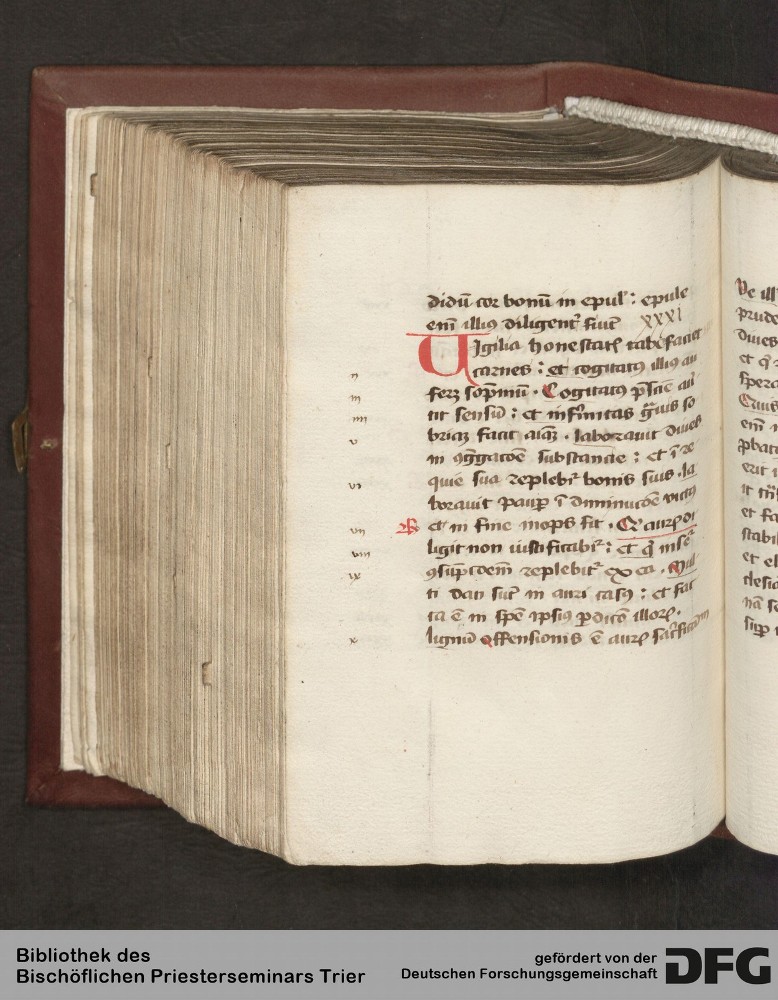 didū cor bonū in epul᷑ : epule
eni᷑ illiꝰ diligent᷑ fiūt XXXI
Vigilia honestat᷑ tabefaciet
carnes : et cogitatꝰ illiꝰ au
ferꝫ sop̄niū . Cogitatꝰ p̄scīe au᷑
tit sensū : et infirmitas gᷓuis so
briaꝫ facit aīaꝫ . laborauit diues
in ꝯgᷓgacōē substancie : et ī re
quie sua replebit᷑ bonis suis . la
borauit paup ī diminucōe victꝰ
ii
iii
iiii
v
vi
vii
viii
ix
x
et in fine inops fit . Qi auꝝ di
ligit non iustificabit᷑ : et q̄ inse᷑
ꝯsūpcōem replebit᷑ ex ea . Mul
ti dati sūt in auri casꝰ : et fac
ta ē in spē ipsiꝰ ꝑdicō illoꝝ .
lignū offensionis ē auꝝ sac᷑ficāciū
Ve ill
prude
diues
et q̄
spera
Quis
eni᷑
pbat
erit
et fa
stabil
et el
clesia
nā se
sup
Bibliothek des
Bischöflichen Priesterseminars Trier
gefördert von der
Deutschen Forschungsgemeinschaft
DFG